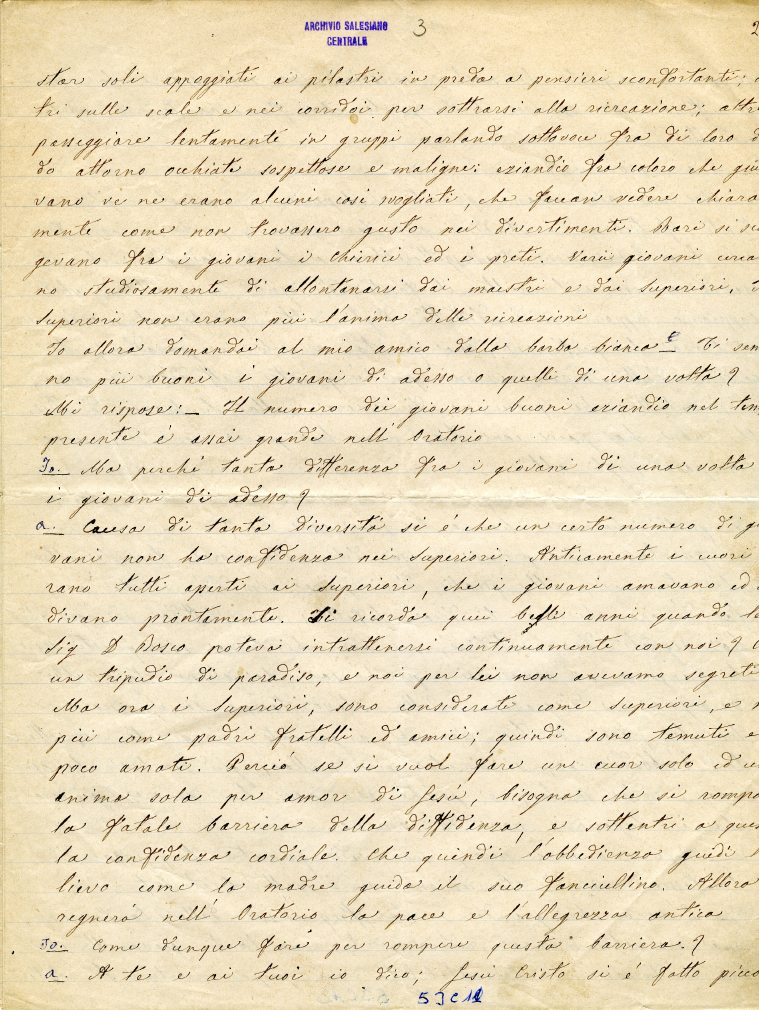 ARCHIVIO SALESIANO
CENTRALE
3
2
star soli appoggiati ai pilastri in preda a pensieri sconfortanti;
tri sulle scale e nei corridoi per sottrarsi alla ricreazione; altri
passeggiare lentamente in gruppi parlando sottovoce fra di loro d
do attorno occhiate sospettose e maligne: eziandio fra coloro che giu
vano ve ne erano alcuni così svogliati, che facean vedere chiara
mente come non trovassero gusto nei divertimenti. Rari si
gevano fra i giovani i chierici ed i preti. Varii giovani cerca
no studiosamente di allontanarsi dai maestri e dai Superiori,
Superiori non erano più l'anima delle ricreazioni
Io allora domandai al mio amico dalla barba bianca -
no più buoni i giovani di adesso o quelli di una volta?
Mi rispose: - Il numero dei giovani buoni eziandio nel tem
presente é assai grande nell' Oratorio
Io. Ma perché tanta differenza fra i giovani di una volta
i giovani di adesso?
a. Causa di tanta diversità si é che un certo numero di gio
vani non ha confidenza nei Superiori. Anticamente i cuori
rano tutti aperti ai Superiori, che i giovani amavano ed
divano prontamente. Si ricorda quei begli anni quando
Sig D Bosco poteva intrattenersi continuamente con noi?
un tripudio di paradiso, e noi per lei non avevamo segreti
Ma ora i Superiori, sono considerati come Superiori, e
più come padri fratelli ed amici; quindi sono temuti e
poco amati. Perciò se si vuol fare un cuor solo ed
anima sola per amor di Gesù, bisogna che si romp
la fatale barriera della diffidenza, e sottentri a ques
la confidenza cordiale. Che quindi l'obbedienza guidi
lievo come la madre guida il suo fanciullino. Allora
regnerà nell' Oratorio la pace e l'allegrezza antica
Io. Come dunque fare per rompere questa barriera.?
a. A te e ai tuoi io dico; Gesù Cristo si é fatto picco